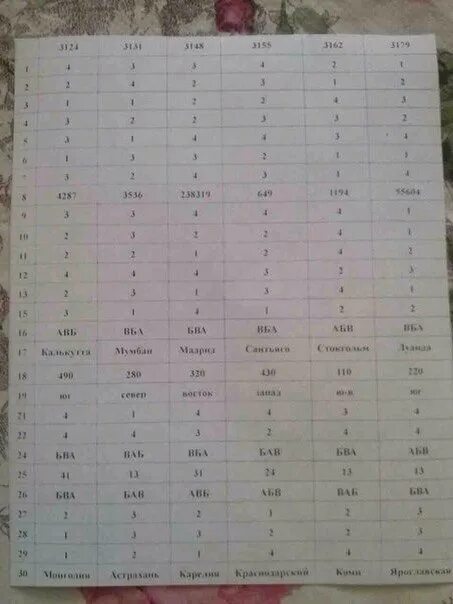 3124 3131 3148 3155 3162 3179
1 4 3 3 4 2 1
2 2 4 2 3 1 2
3 1 1 2 2 4 3
4 3 2 2 3 3 2
5 3 1 4 4 3 4
6 1 3 3 2 1 3
7 3 2 4 3 1 4
8 4287 3536 238319 649 1194 55604
9 3 3 4 4 4 1
10 2 3 2 2 4 1
11 2 2 1 2 4 2
12 4 4 4 3 2 3
13 2 3 1 3 4 1
15 3 1 4 1 2 2
16 АВБ ВБА БВА ВБА АБВ ВБА
17 Калькутта Мумбаи Мадрид Сантьяго Стокгольм Луанда
18 490 280 320 430 110 220
19 юг север восток запад ю-в юг
21 4 1 4 4 3 4
22 4 4 3 2 4 4
24 БВА ВАБ ВБА БАВ БВА АБВ
25 41 13 31 24 13 13
26 БВА БАВ АВБ АБВ ВАБ БВА
27 2 3 2 1 2 3
28 1 3 3 2 2 3
29 1 2 1 4 4 4
30 Монголия Астрахань Карелия Краснодарской Коми Ярославская